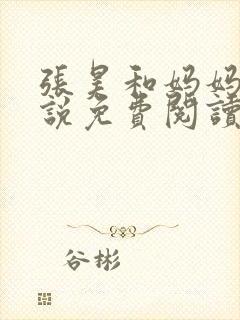 張昊和妈妈
說免費閱讀
谷彬